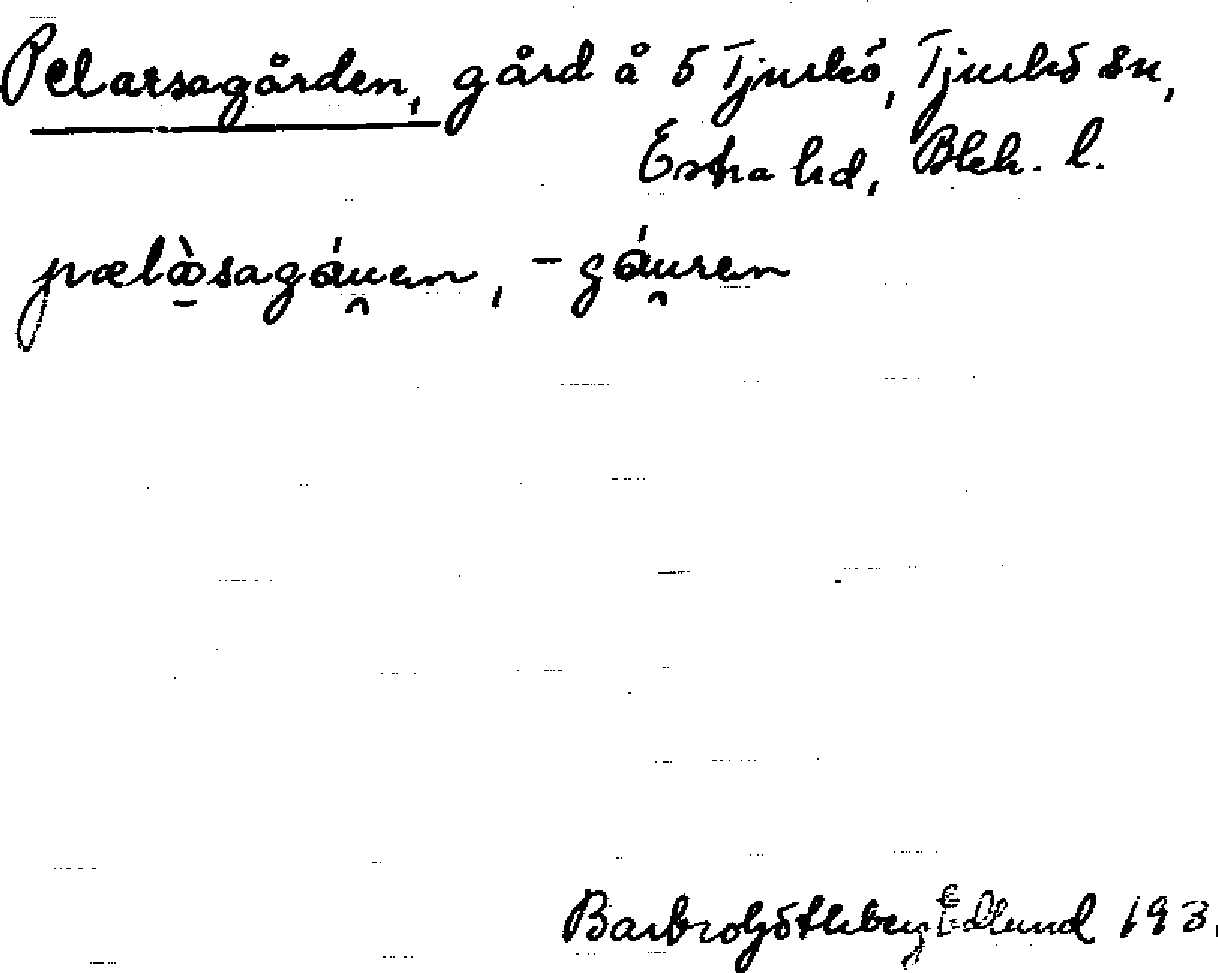 Pelarsagården, gård å 5 Tjurkö, Tjurkö sn,
Östra hd, Blek. l.
pælòsagáuen, -gáuren
Barbro Götlberg Edlund 193